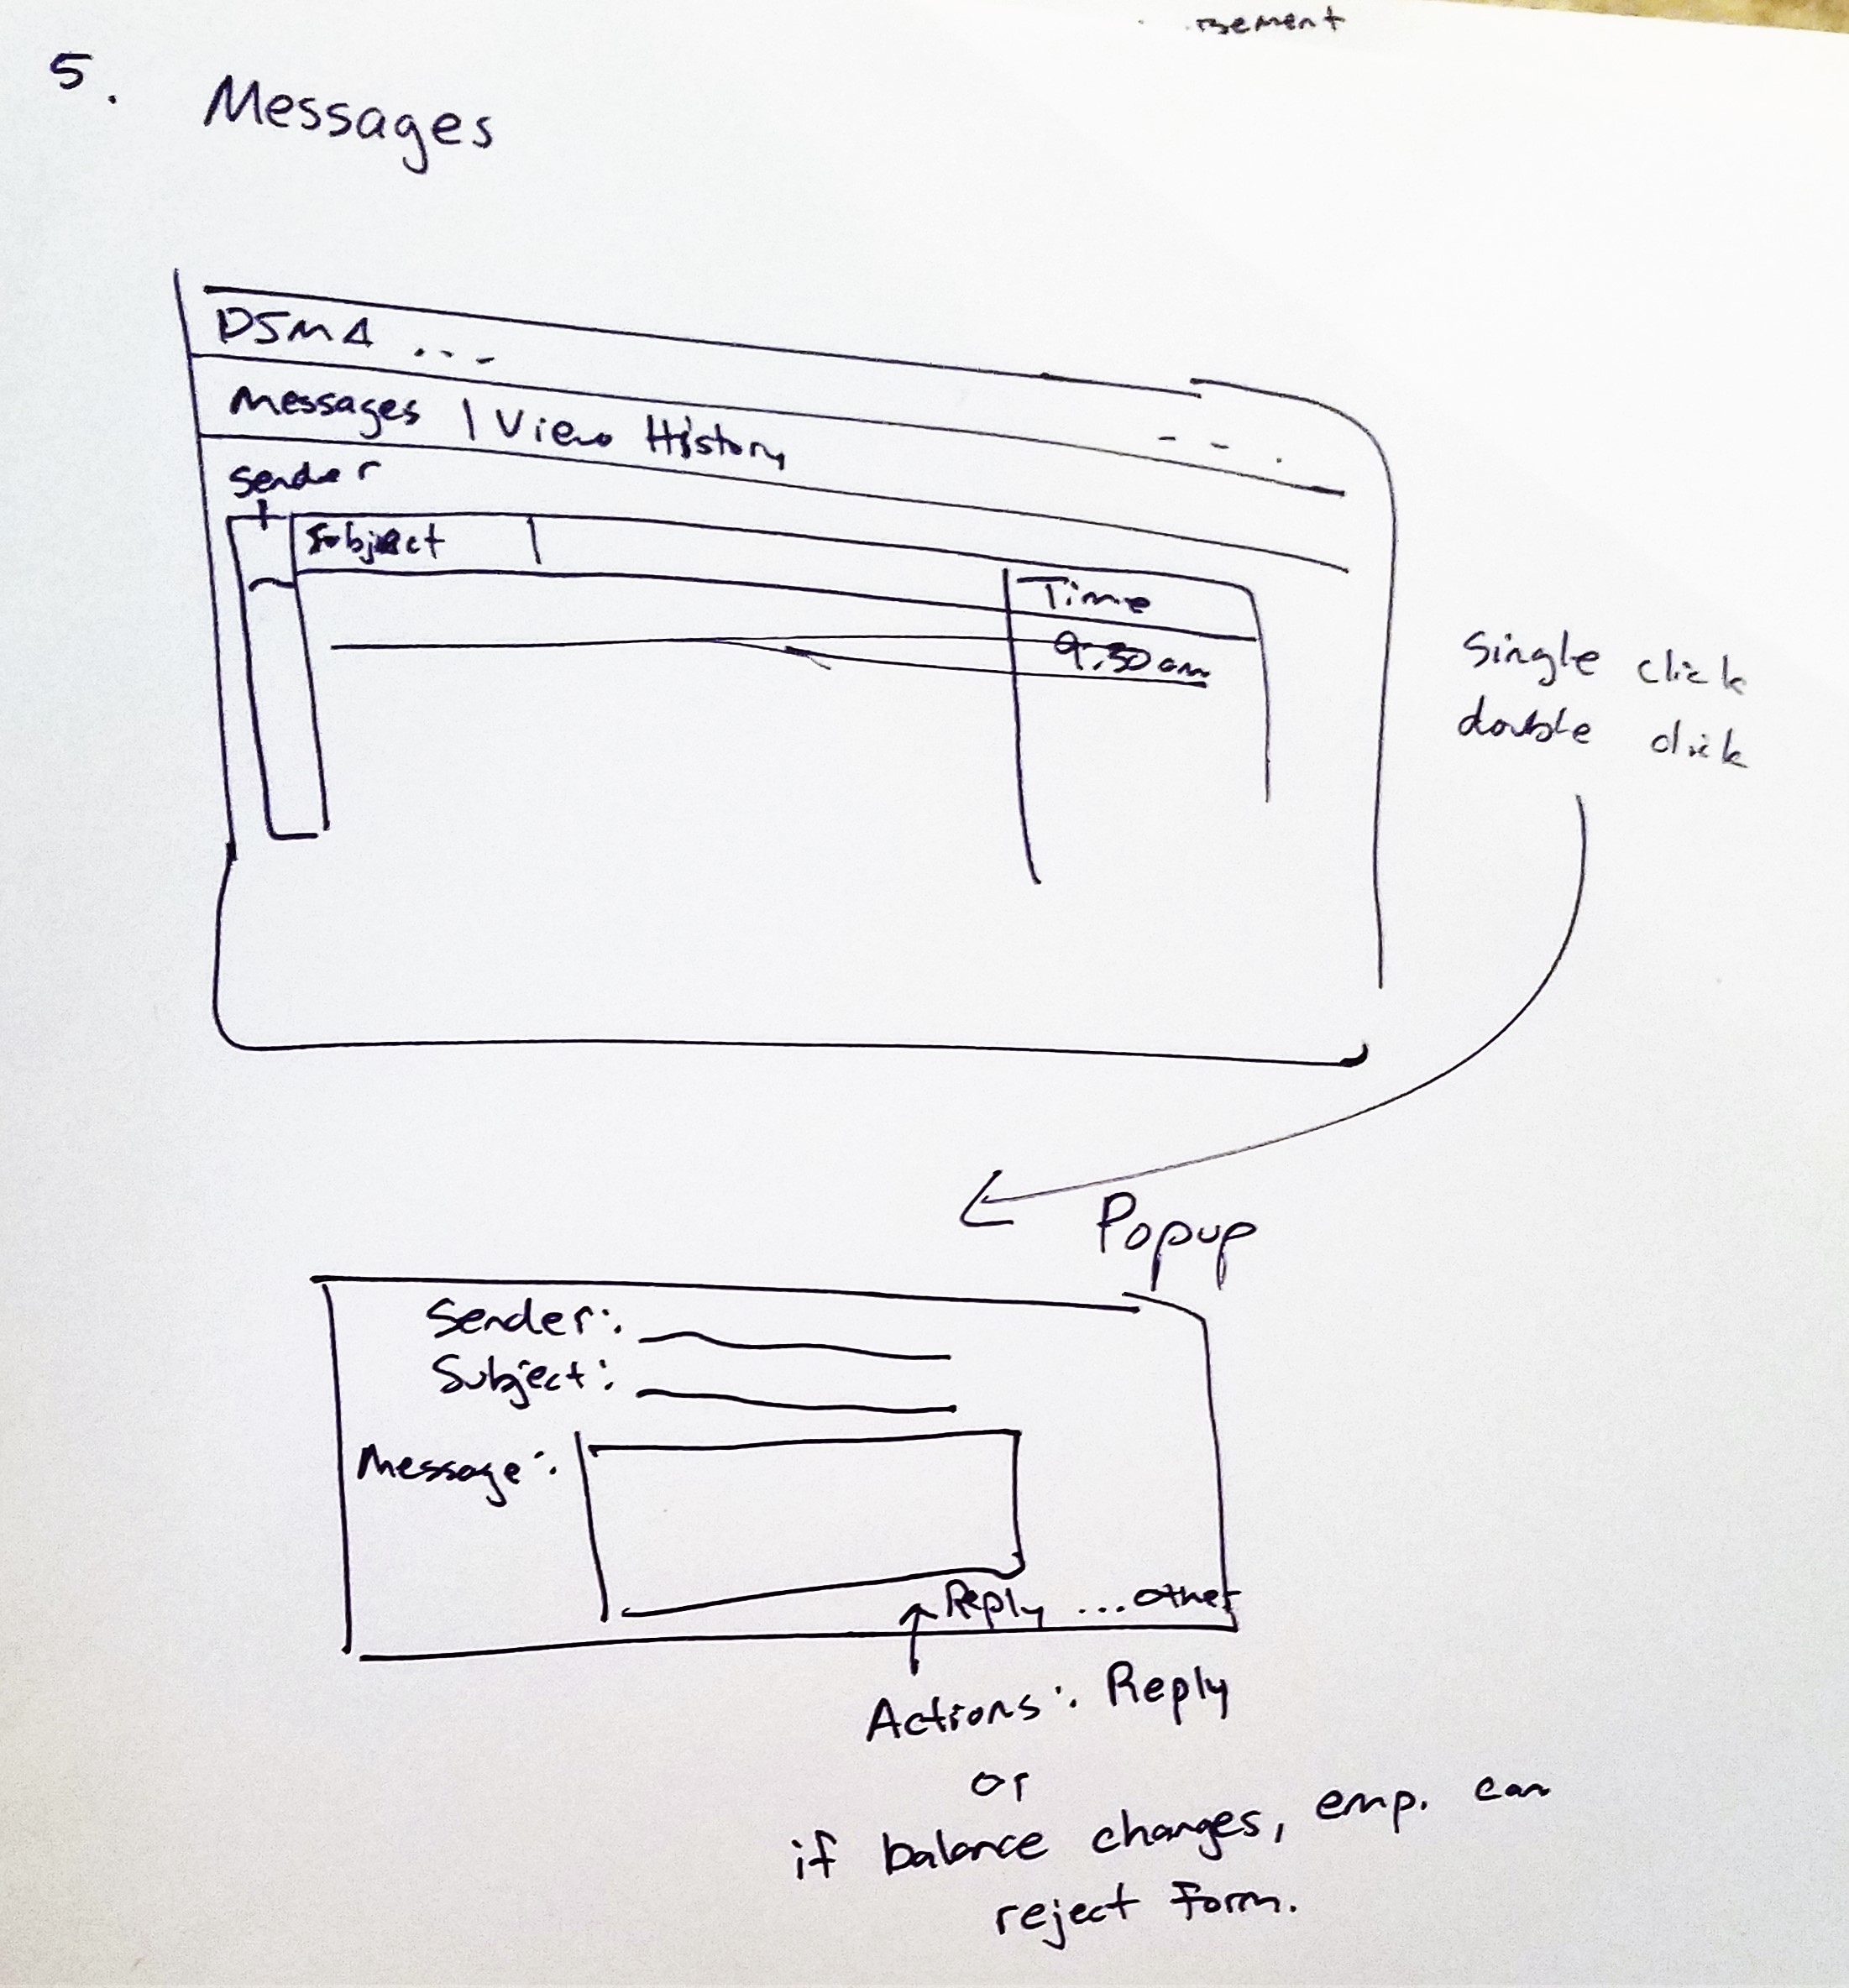 5. Messages
DSMA ...
Messages | View History
Sender
Subject
Time
9:30am
Single click
double click
Popup
Sender:
Subject:
Message:
Reply ...other
Actions: Reply
or
if balance changes, emp. can
reject form.